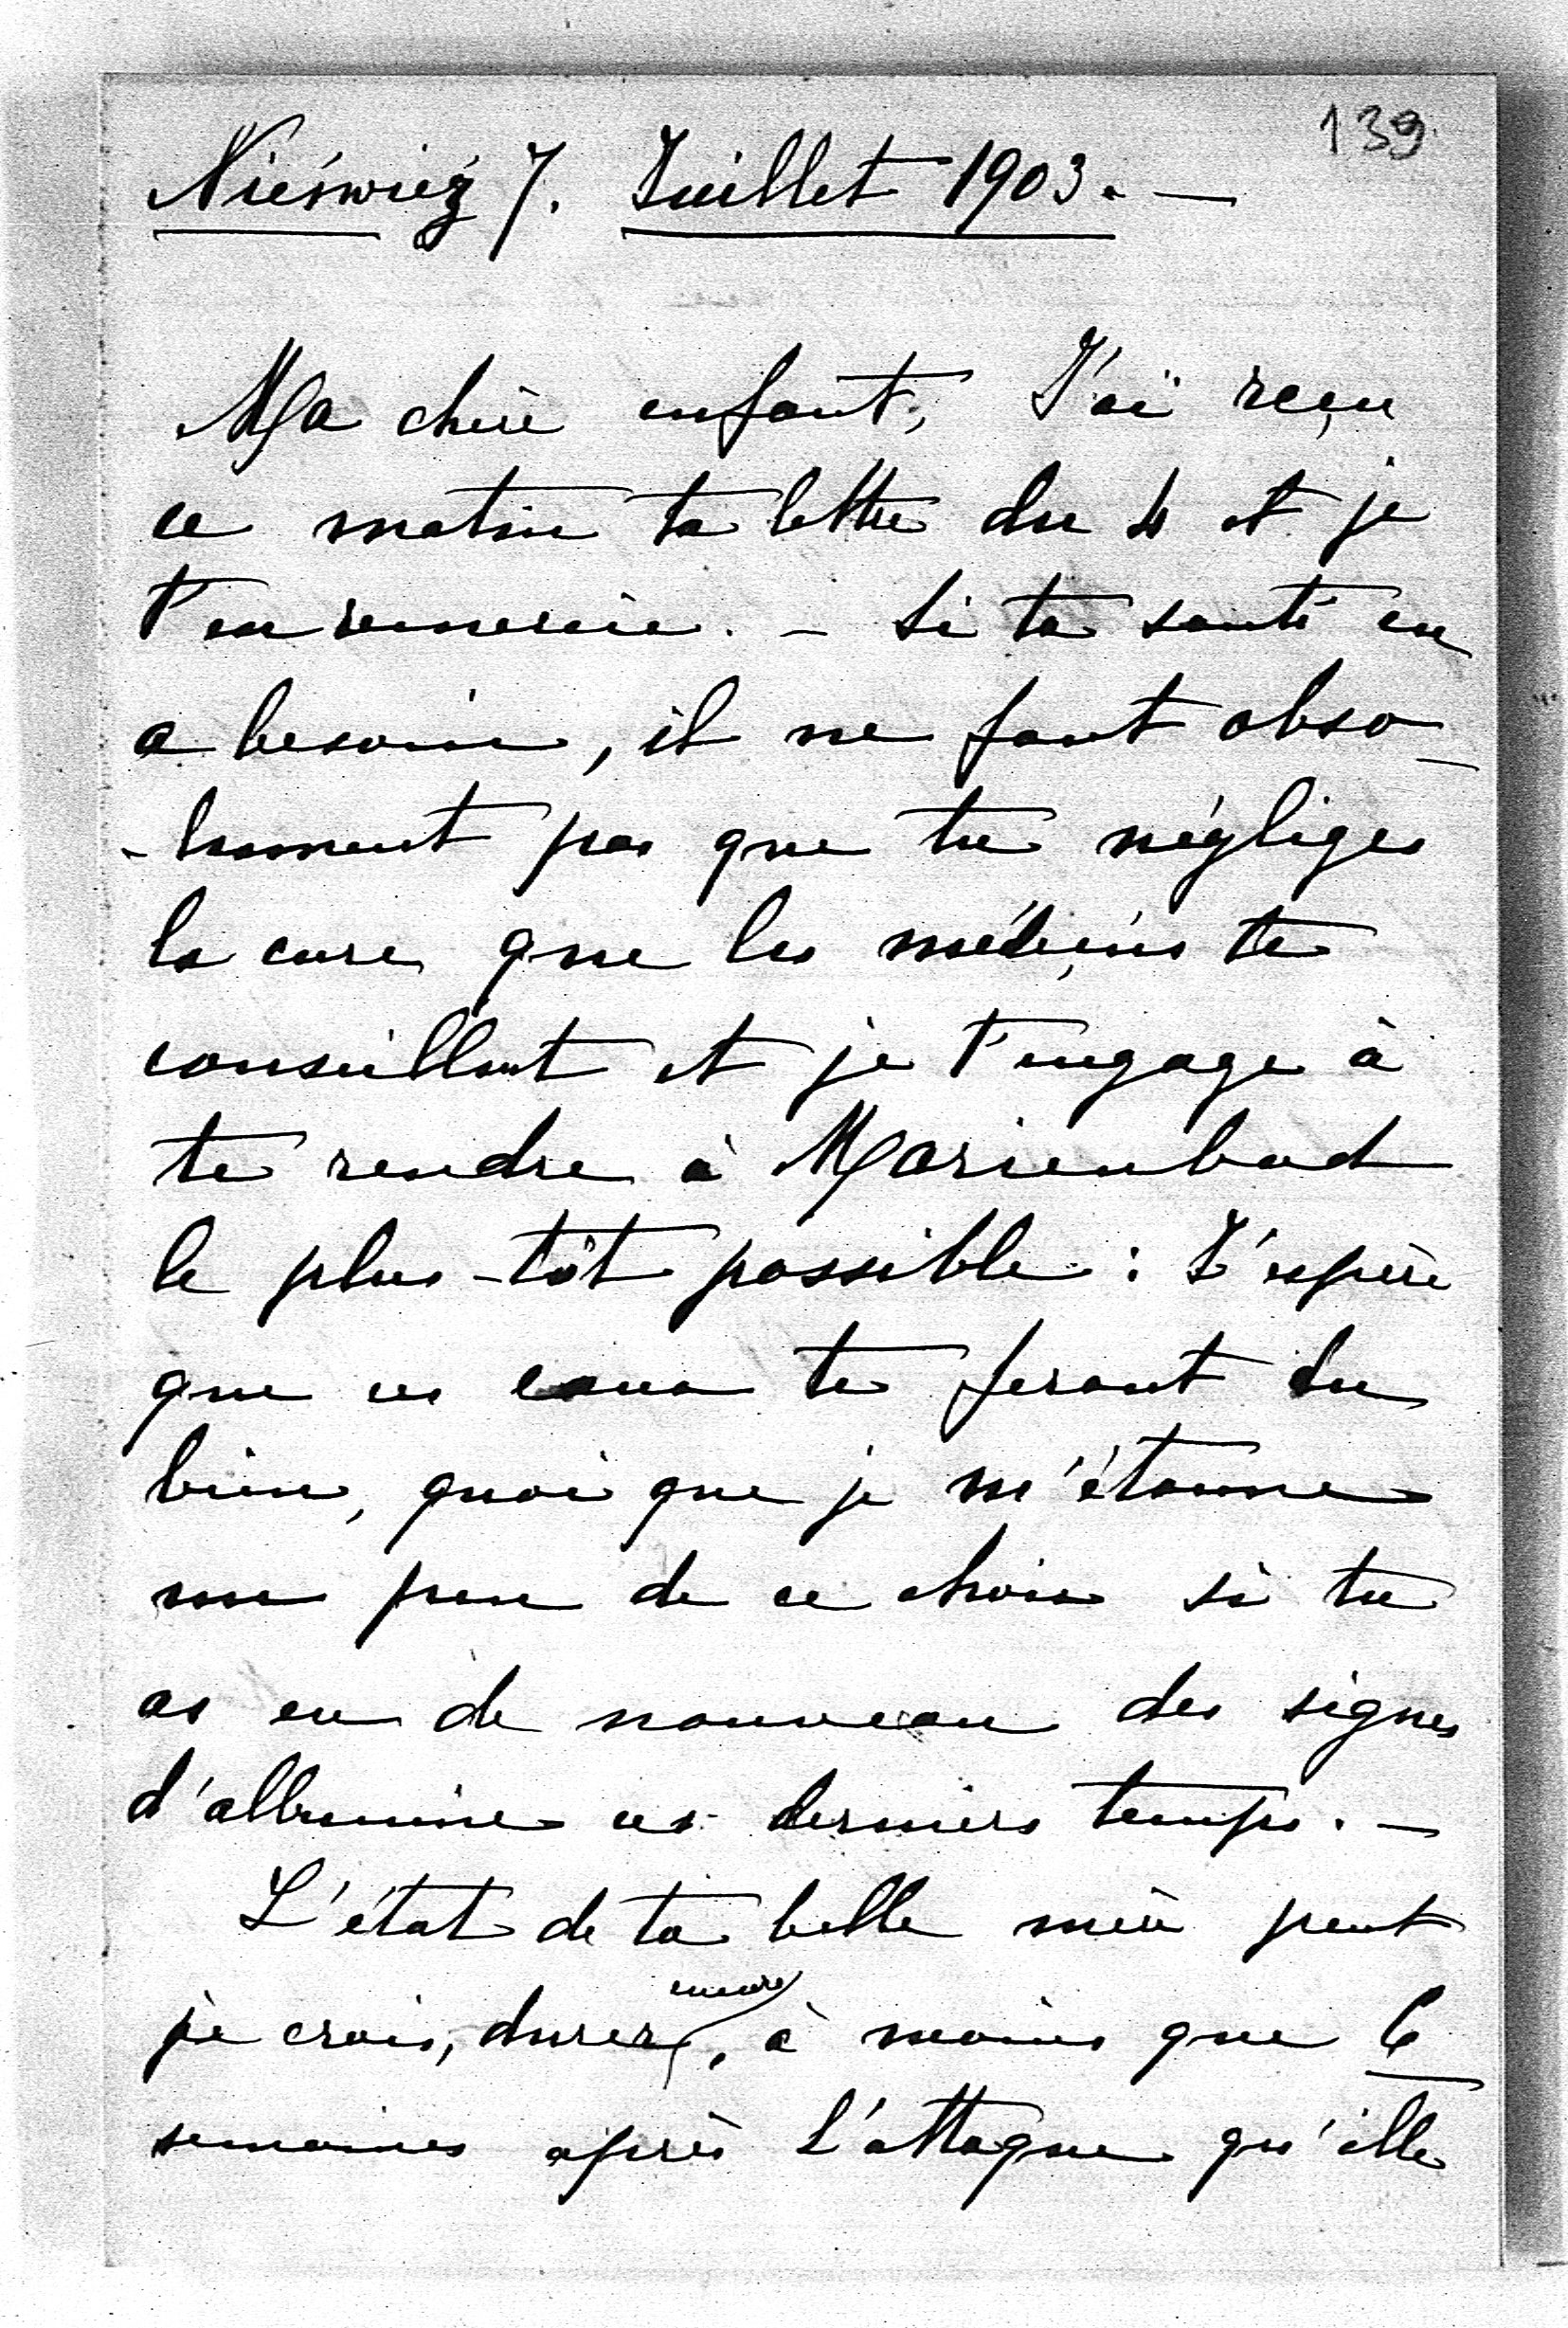 139
Nieśwież 7. Juillet 1903. —
Ma chère enfant, J'ai reçu
ce matin ta lettre du 4 et je
t'en remercie. — Si ta santé en
a besoin, il ne faut abso-
-lument pas que tu négliges
la cure que les médecins te
conseillent et je t'engage à
te rendre à Marienbad
le plus-tôt possible : J'espère
que ces eaux te feront du
bien, quoi que je m'étonne
un peu de ce choix si tu
as eu de nouveau des signes
d'albumine ces derniers temps. —
L'état de ta belle mère peut
je crois, durer encore, à moins que 6
semaines après l'attaque qu'elle